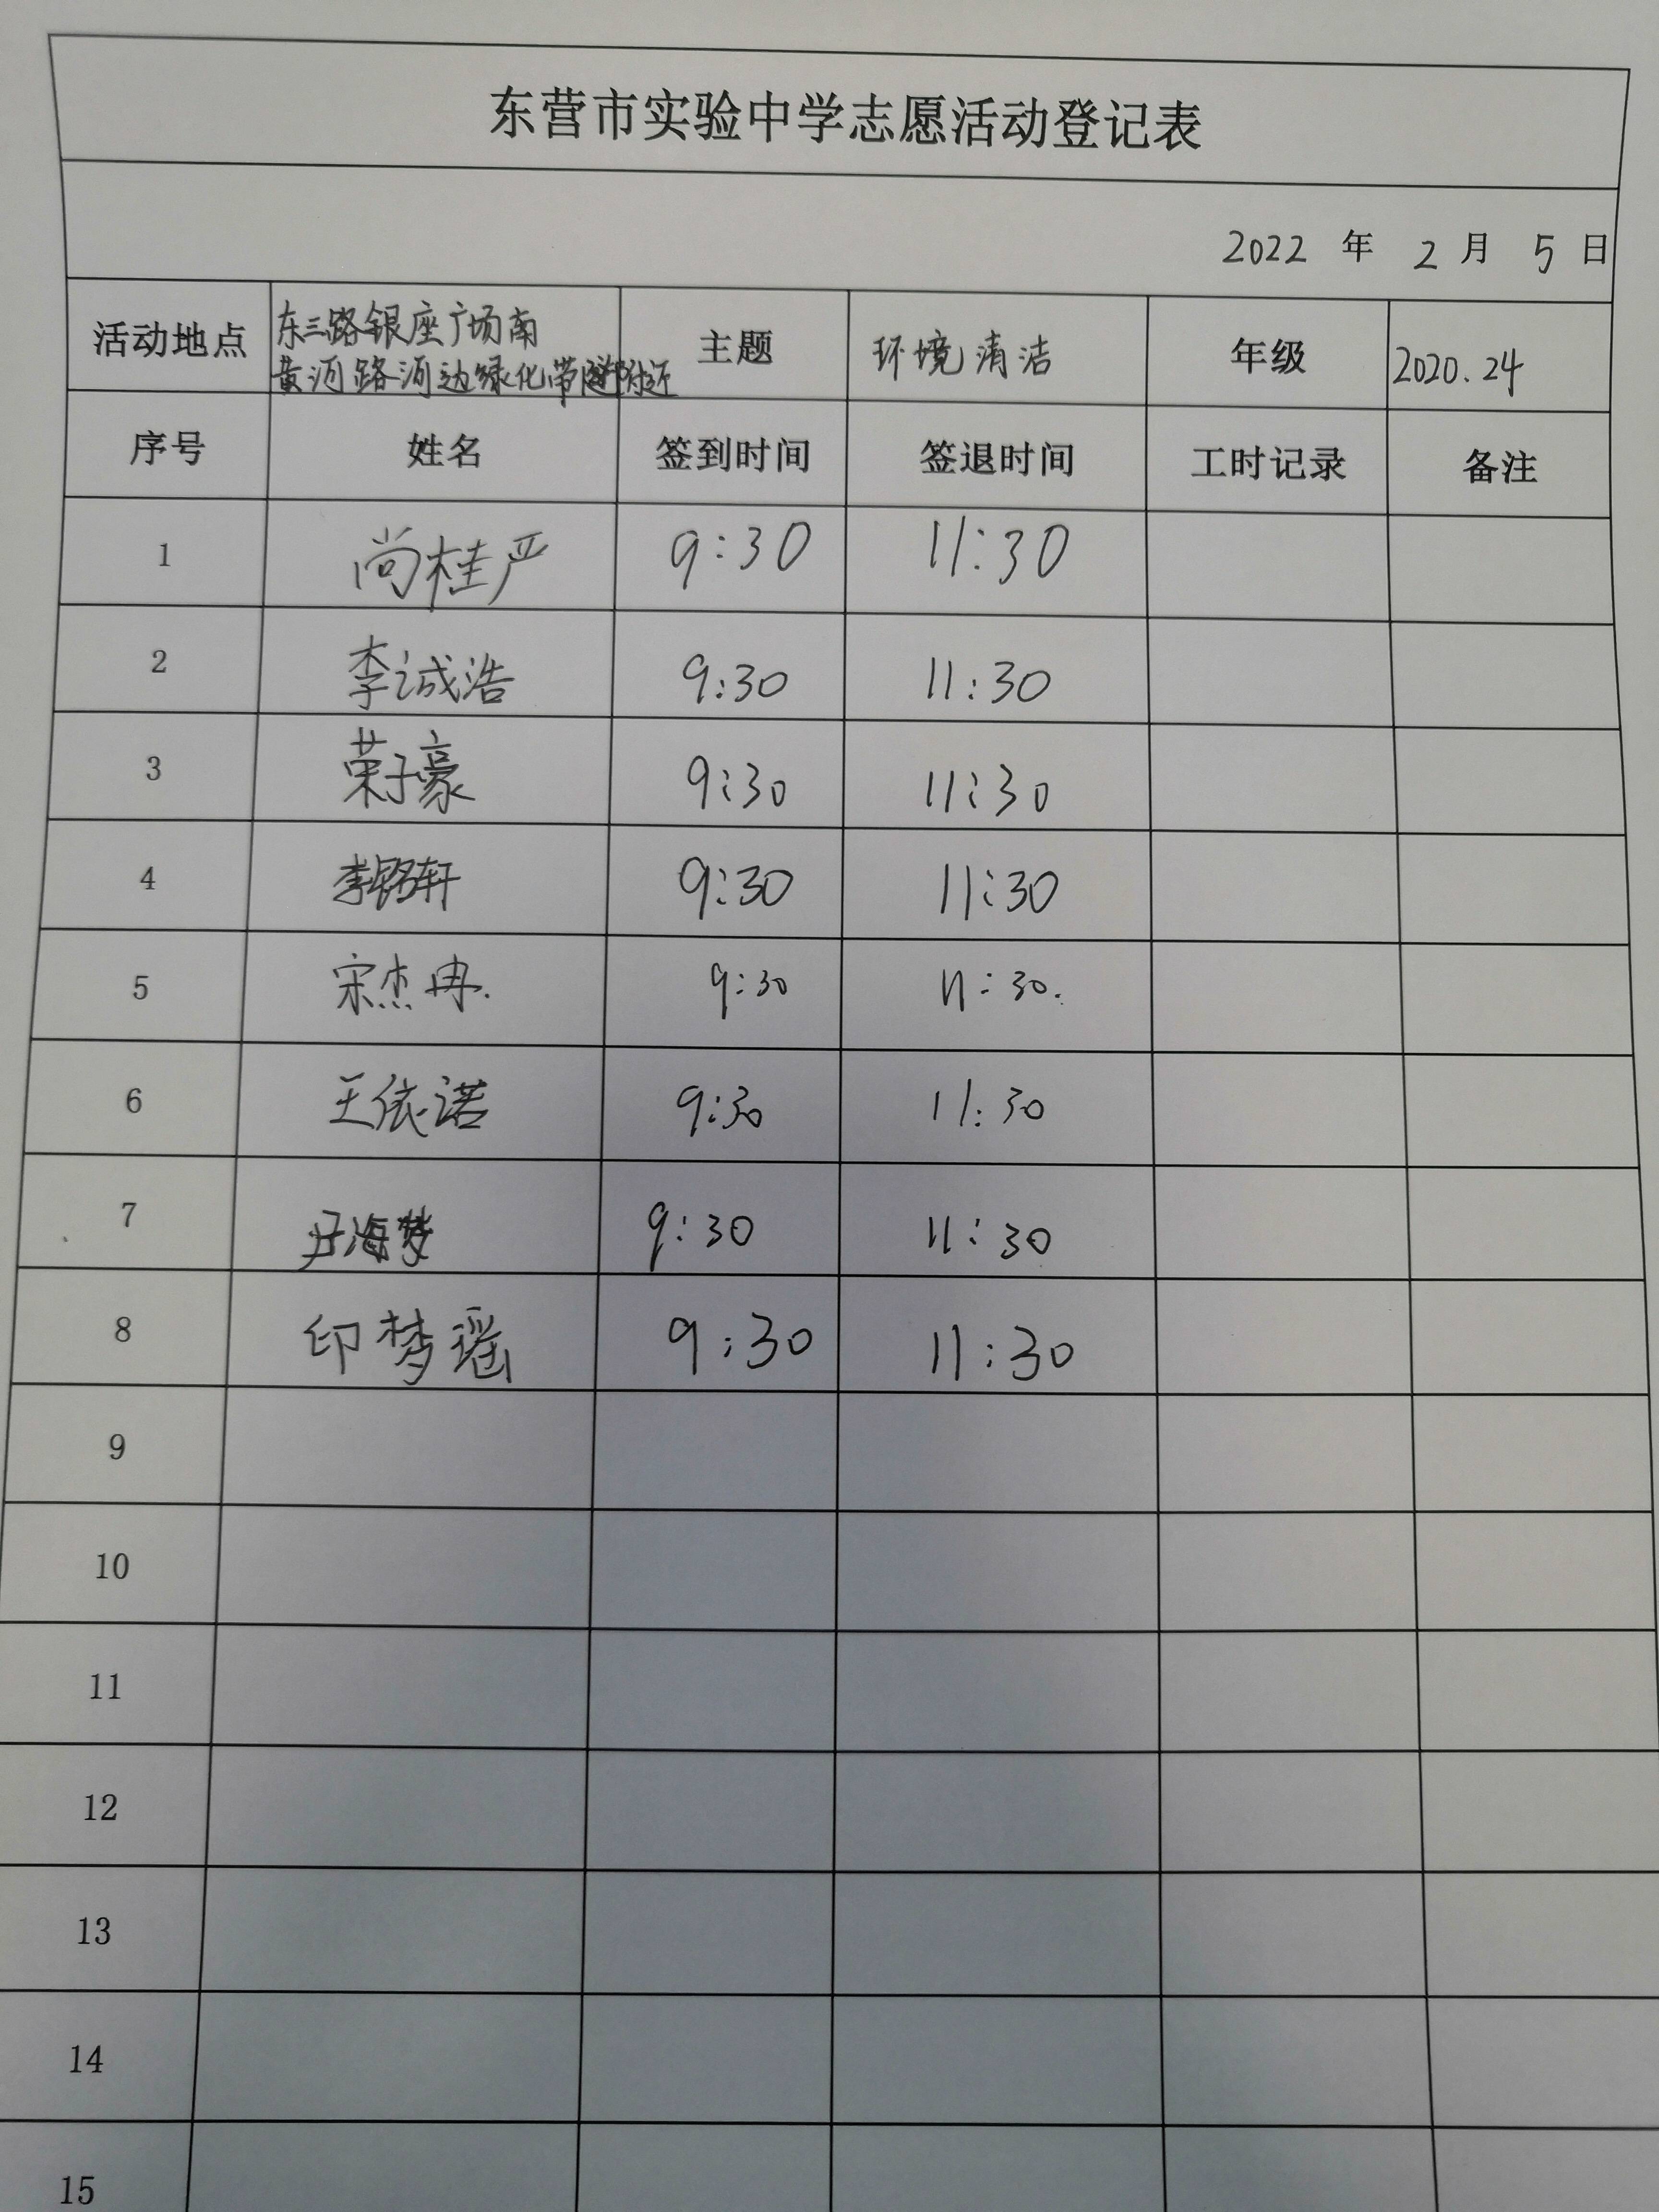 东营市实验中学志愿活动登记表
2022 年 2 月 5 日
活动地点 东三路银座广场南 主题 环境清洁 年级 2020.24
黄河路河边绿化带附近
序号 姓名 签到时间 签退时间 工时记录 备注
1 尚桂严 9:30 11:30
2 李诚浩 9:30 11:30
3 荣子豪 9:30 11:30
4 李铭轩 9:30 11:30
5 宋杰冉. 9:30 11:30.
6 王依诺 9:30 11:30
7 海梦 9:30 11:30
8 印梦瑶 9:30 11:30
9
10
11
12
13
14
15